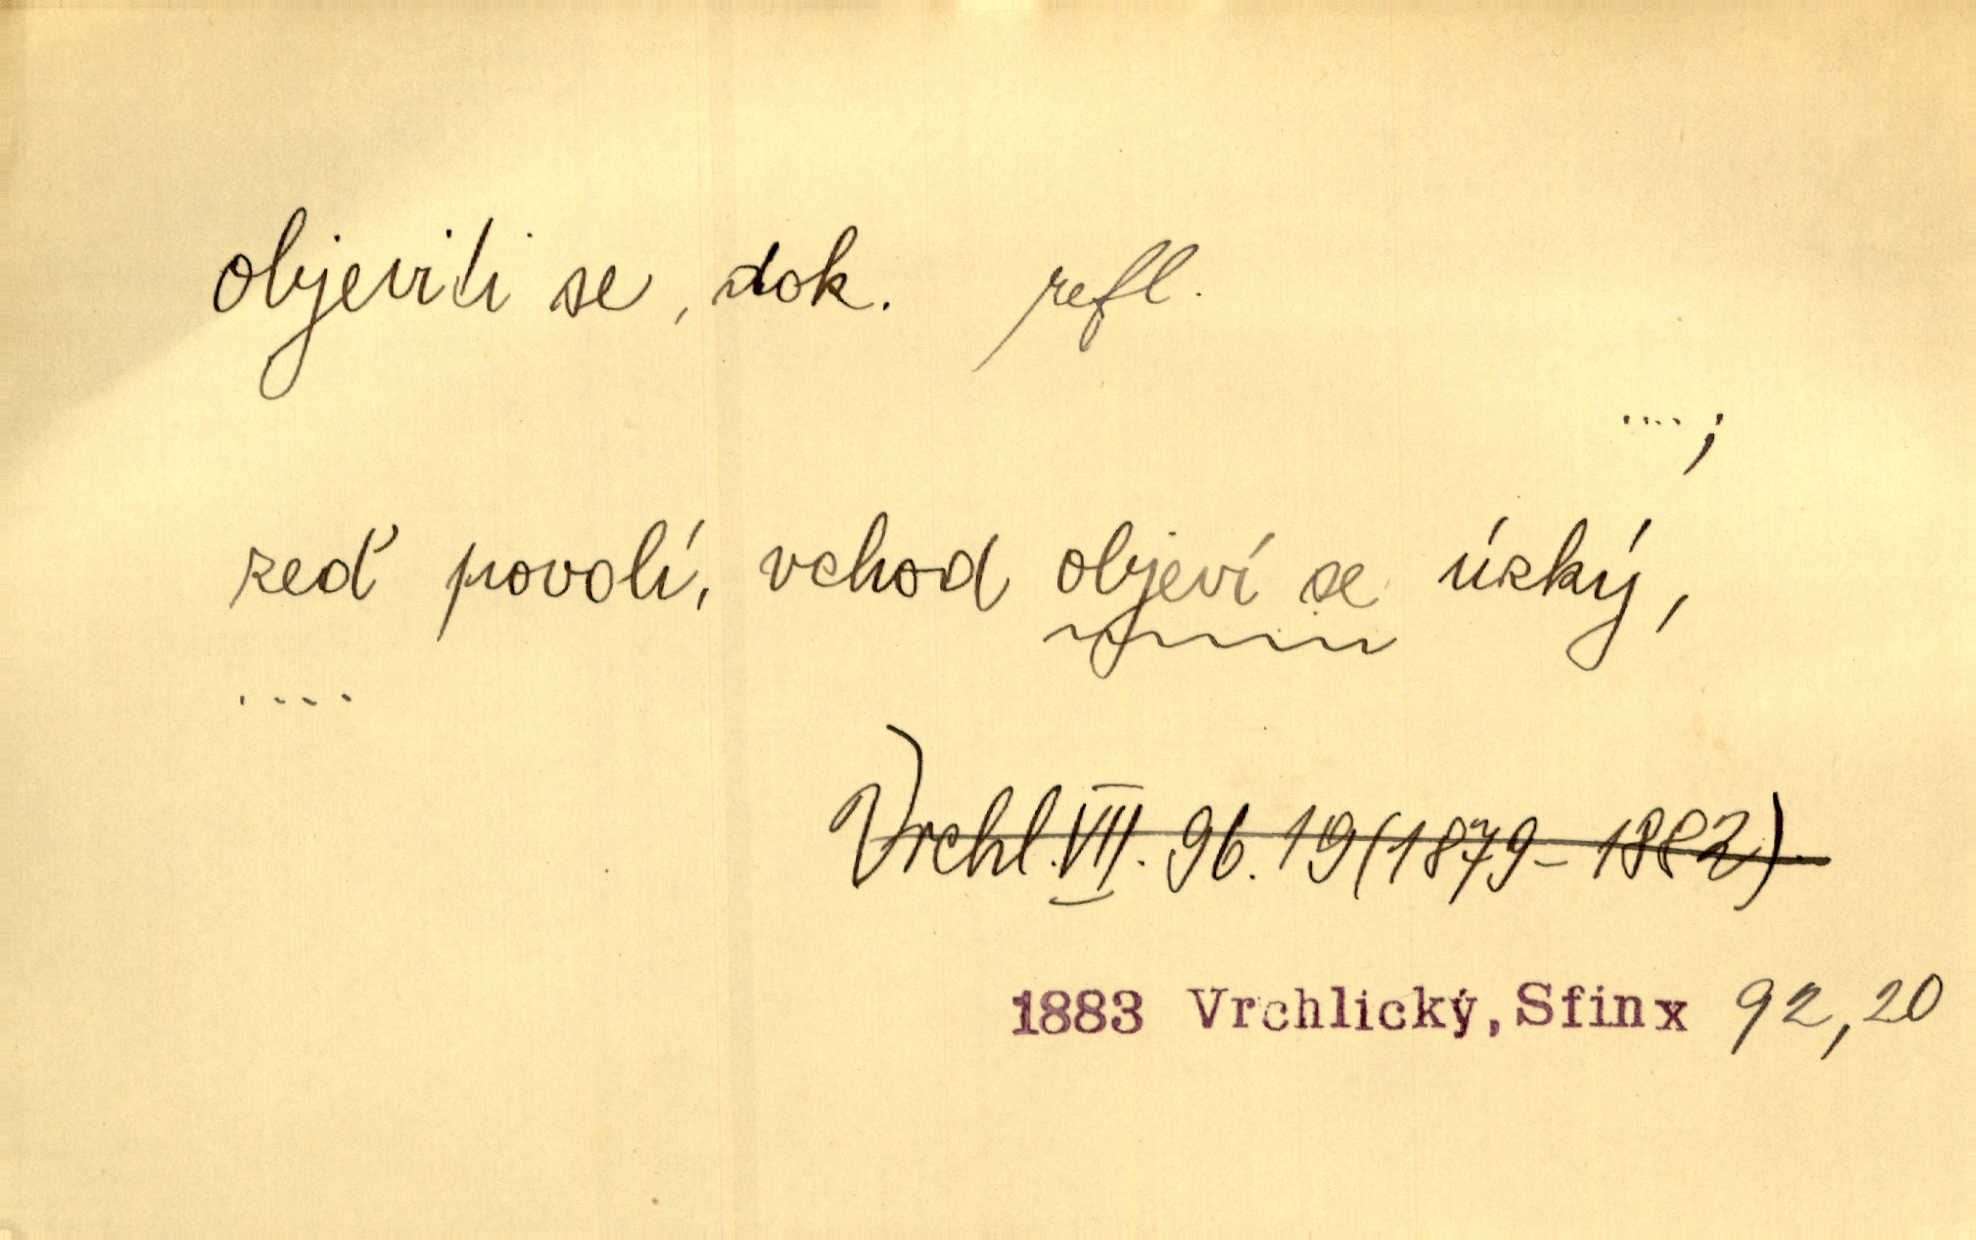 objeviti se, dok. refl.
....;
zeď povolí, vchod objeví se úzký,
....
Vrchl. VII. 96. 19 (1879–1882).
1883 Vrchlický, Sfinx 92,20